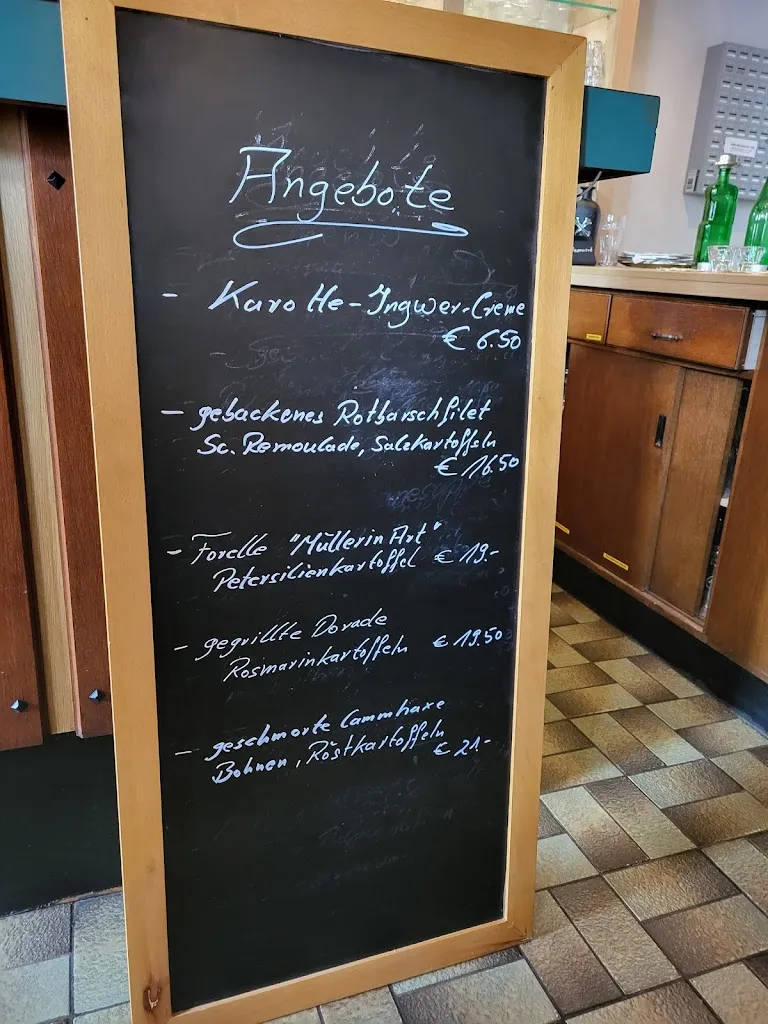 Angebote
- Karotte-Ingwer-Creme
€ 6.50
- gebackenes Rotbarschfilet
Sc. Remoulade, Salzkartoffeln
€ 16.50
- Forelle "Müllerin Art"
Petersilienkartoffel € 19.-
- gegrillte Dorade
Rosmarinkartoffeln € 19.50
- geschmorte Lammhaxe
Bohnen, Röstkartoffeln
€ 21.-